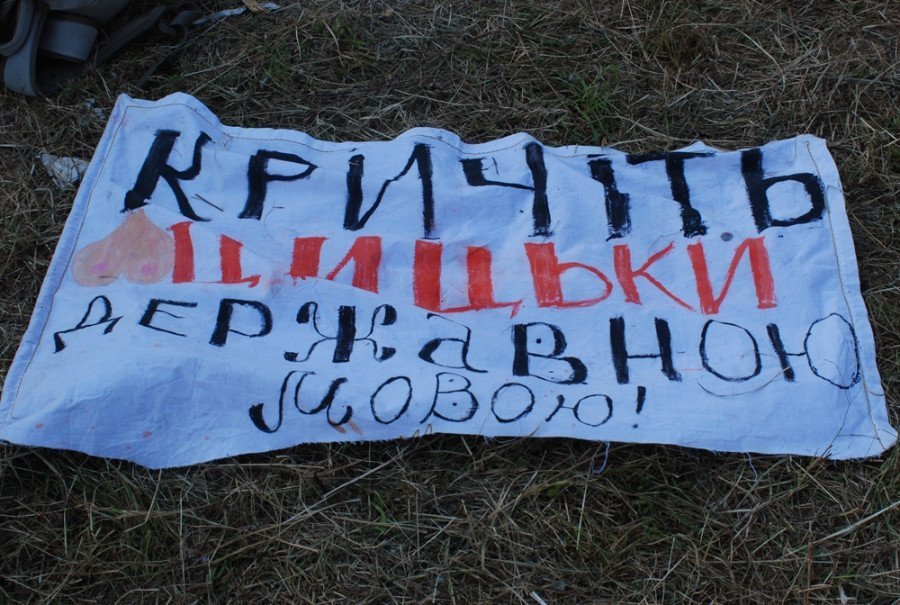 КРИЧІТЬ
ЦИЦЬКИ
ДЕРЖАВНОЮ
МОВОЮ!